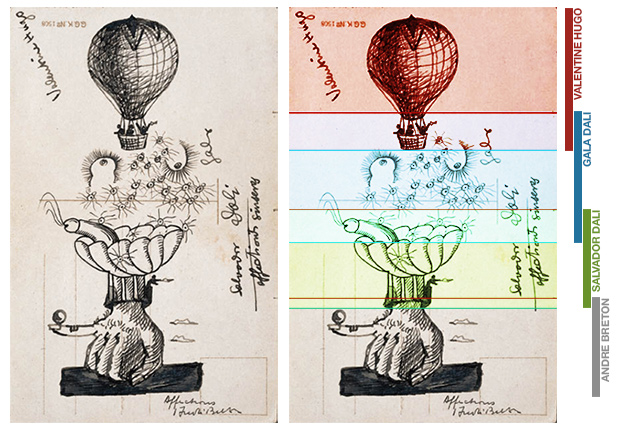 Valentine Hugo
G.G.K Nº 1508
Gala
Salvador Dalí
affections sinceres
Affections
André Breton
Valentine Hugo
G.G.K Nº 1508
Gala
Salvador Dalí
affections sinceres
Affections
André Breton
VALENTINE HUGO
GALA DALI
SALVADOR DALI
ANDRE BRETON